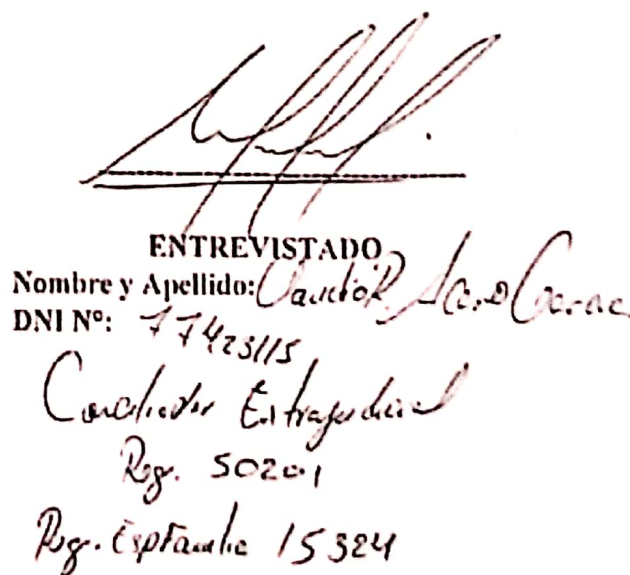 ENTREVISTADO
Nombre y Apellido: Claudio R.
DNI Nº: 77423115
Conciliador Extrajudicial
Reg. 50201
Reg. Esp Familia 15324